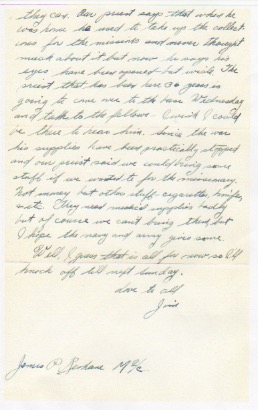 they can. Our priest says that when he
was home he used to take up the collect-
ions for the missions and never thought
much about it but now he says his
eyes have been opened but wide. The
priest that has been here 30 years is
going to come over to the base Wednesday
and talk to the fellows. I wish I could
be there to hear him. Since the war
his supplies have been practically stopped
and our priest said we could bring some
stuff if we wanted to for the missionary.
Not money but other stuff, cigarettes, knifes,
ect. They need medical supplies badly
but of course we can't bring them but
I hope the navy and army gives some.
Well, I guess that is all for now so I'll
knock off till next Sunday.
Love to all
Jim
James P.